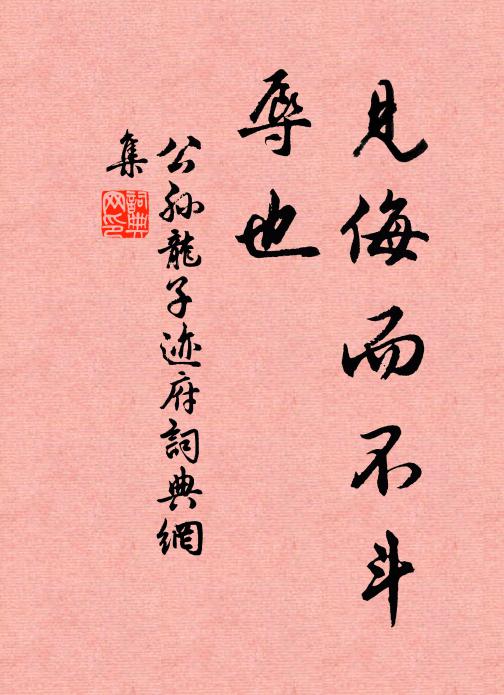 見侮而不斗
辱也
公孙龍子迹府詞典網
集
詞典
网印